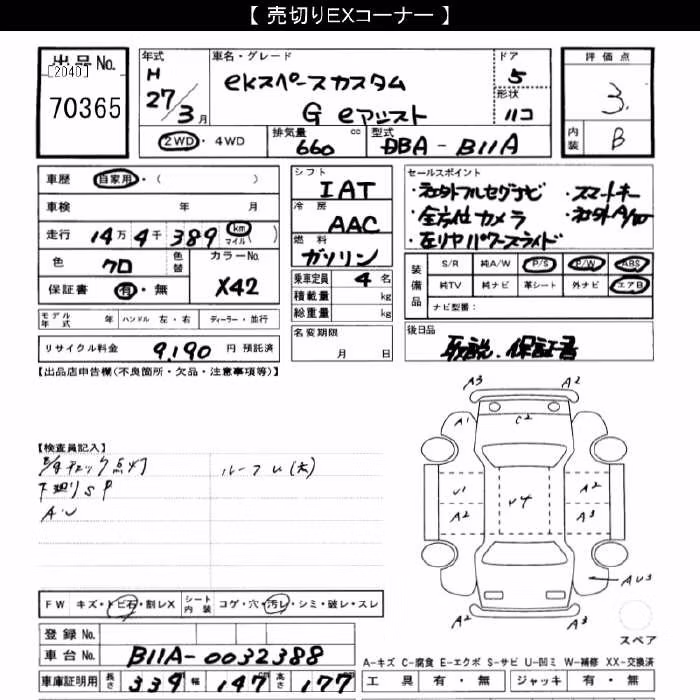 【 売切りEXコーナー 】
出品No. [2040] 70365
年式 H 27/3月
車名・グレード ekスペースカスタム G eアシスト
ドア 5
形状 ハコ
評価点 3.
内装 B
2WD・4WD
排気量 660 cc
型式 DBA-B11A
車歴 自家用・( )
車検 年 月
走行 14万4千389 km マイル
色 クロ 色替
カラーNo. X42
保証書 有・無
シフト IAT
冷房 AAC
燃料 ガソリン
乗車定員 4名
積載量 kg
総重量 kg
セールスポイント
・社外フルセグナビ ・スマートキー
・全方位カメラ ・社外A/W
・左リヤパワースライド
装備品 S/R 純A/W P/S P/W ABS
純TV 純ナビ 革シート 外ナビ エアB
ナビ型番:
モデル年式 年 ハンドル 左・右 ディーラー・並行
リサイクル料金 9,190 円 預託済
名変期限 月 日
後日品 取説.保証書
【出品店申告欄(不良箇所・欠品・注意事項等)】
【検査員記入】
チェック点灯 ルーフU(大)
下廻りSP
A.U
A3 A2
A1 C2
U1 A2 U4 A2 A3
AU3
A2 A3
スペア
FW キズ・トビ石・割レX シート内装 コゲ・穴・汚レ・シミ・破レ・スレ
登録No.
車台No. B11A-0032388
車庫証明用 長さ 339 幅 147 高さ 177
A-キズ C-腐食 E-エクボ S-サビ U-凹ミ W-補修 XX-交換済
工具 有・無 ジャッキ 有・無